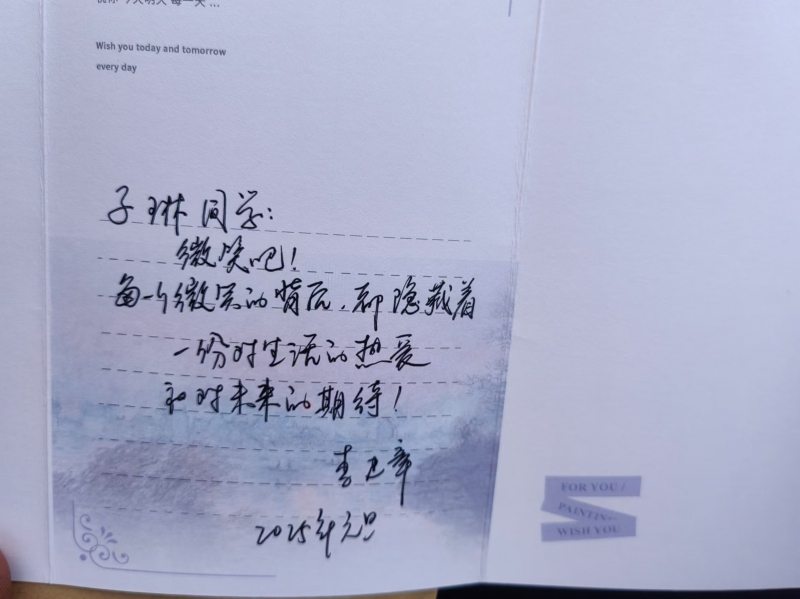 Wish you today and tomorrow
every day
子琳同学:
微笑吧!
每一个微笑的背后,都隐藏着
一份对生活的热爱
和对未来的期待!
2025年元旦
FOR YOU /
PAINTING
WISH YOU